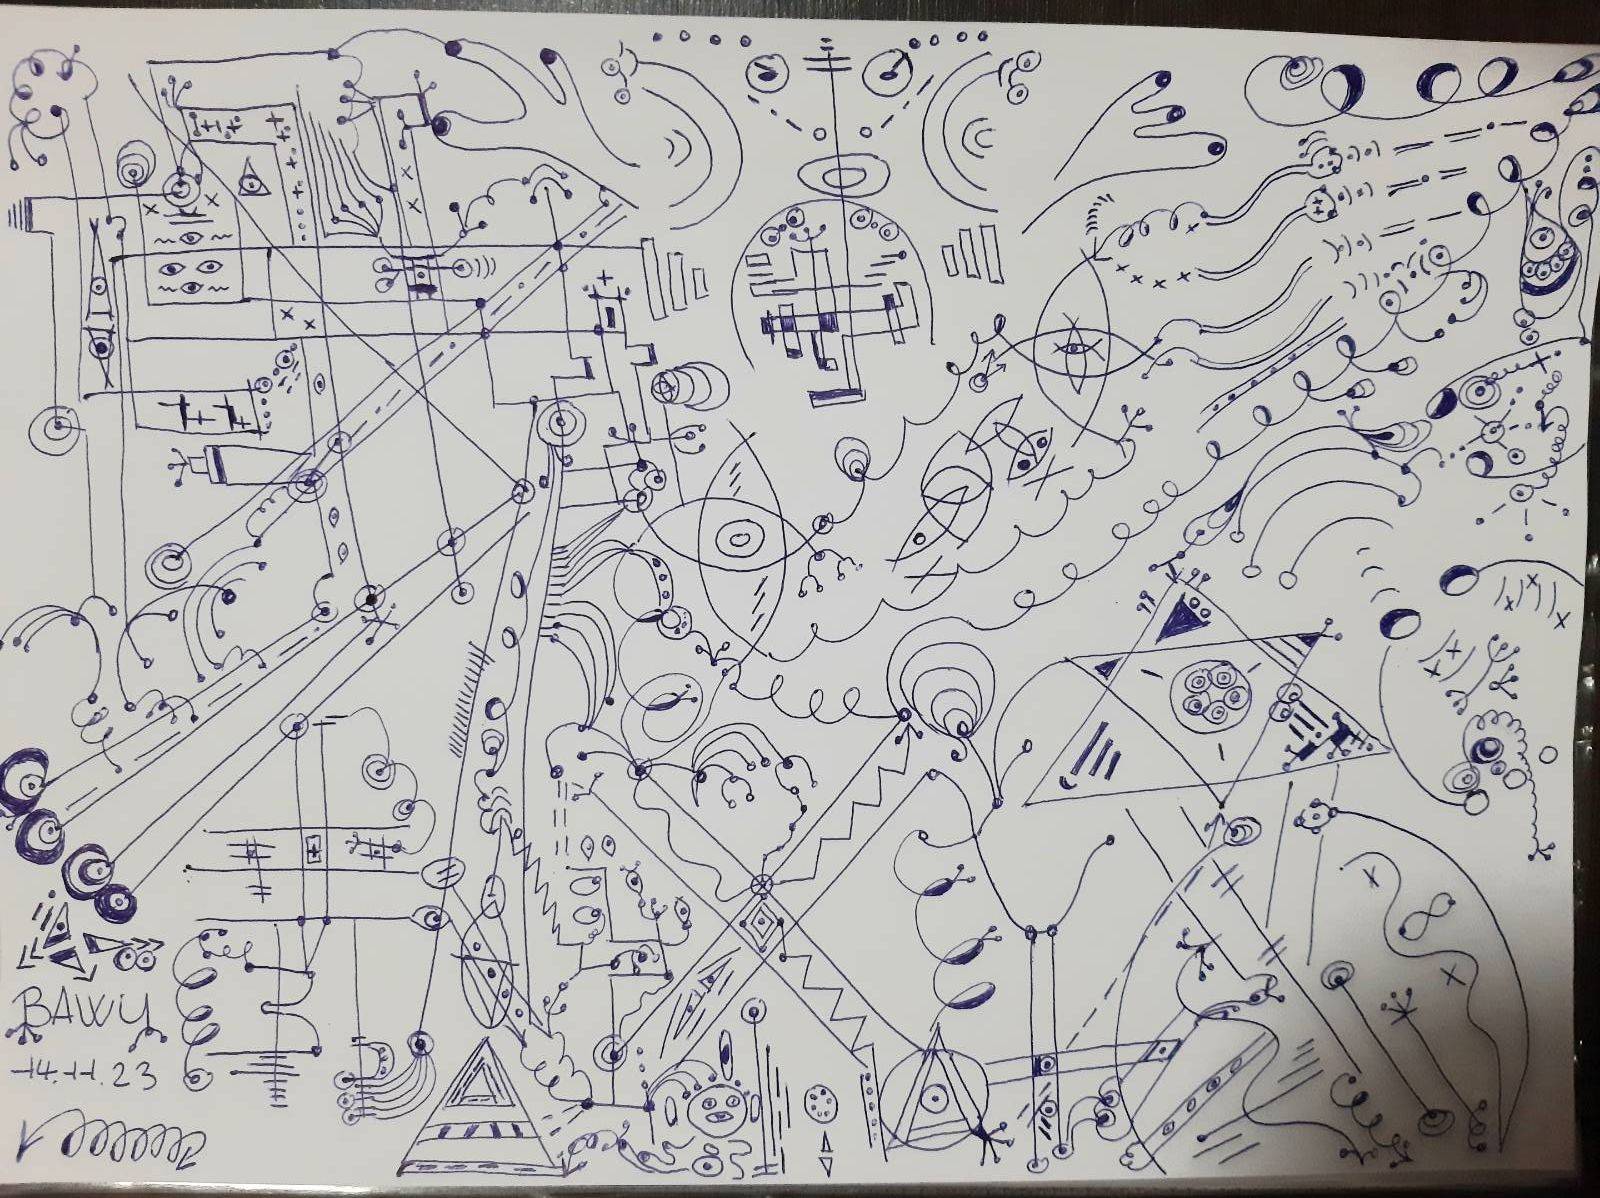 BAWY
14.11.23